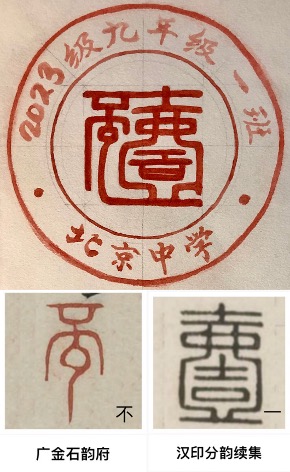 2023级九年级一班
不壹
北京中学
不 不
壹 一
广金石韵府
汉印分韵续集